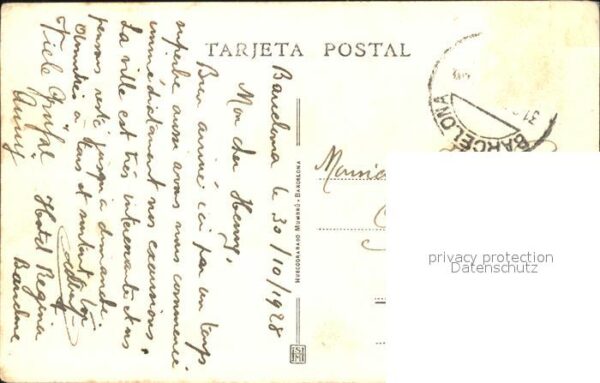 TARJETA POSTAL
Barcelona le 30/10/1928
Mon cher Henry,
Bien arrivé ici par un temps
superbe aussi avons nous commencé
immédiatement nos excursions.
La ville est très interessante et nous
pensons rester jusqu'à dimanche.
à tous et surtout à toi
Viele Grüße
Hotel Regina
Barcelone
HUECOGRABADO MUMBRÚ - BARCELONA
BARCELONA
31
privacy protection
Datenschutz